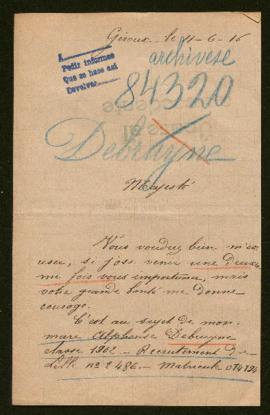 le 11-6-16
archívese
Pedir informes
Que se hace así
Devolver
84320
Debruyne
Majesté
Vous voudrez bien m'ex
cuser, si j'ose venir une Deuxiè
me fois vous importuner, mais
votre grande bonté me donne
courage.
C'est au sujet de mon
mari Alphonse Debruyne
classe 1902 - Recrutement
Lille no 2486 - Matricule